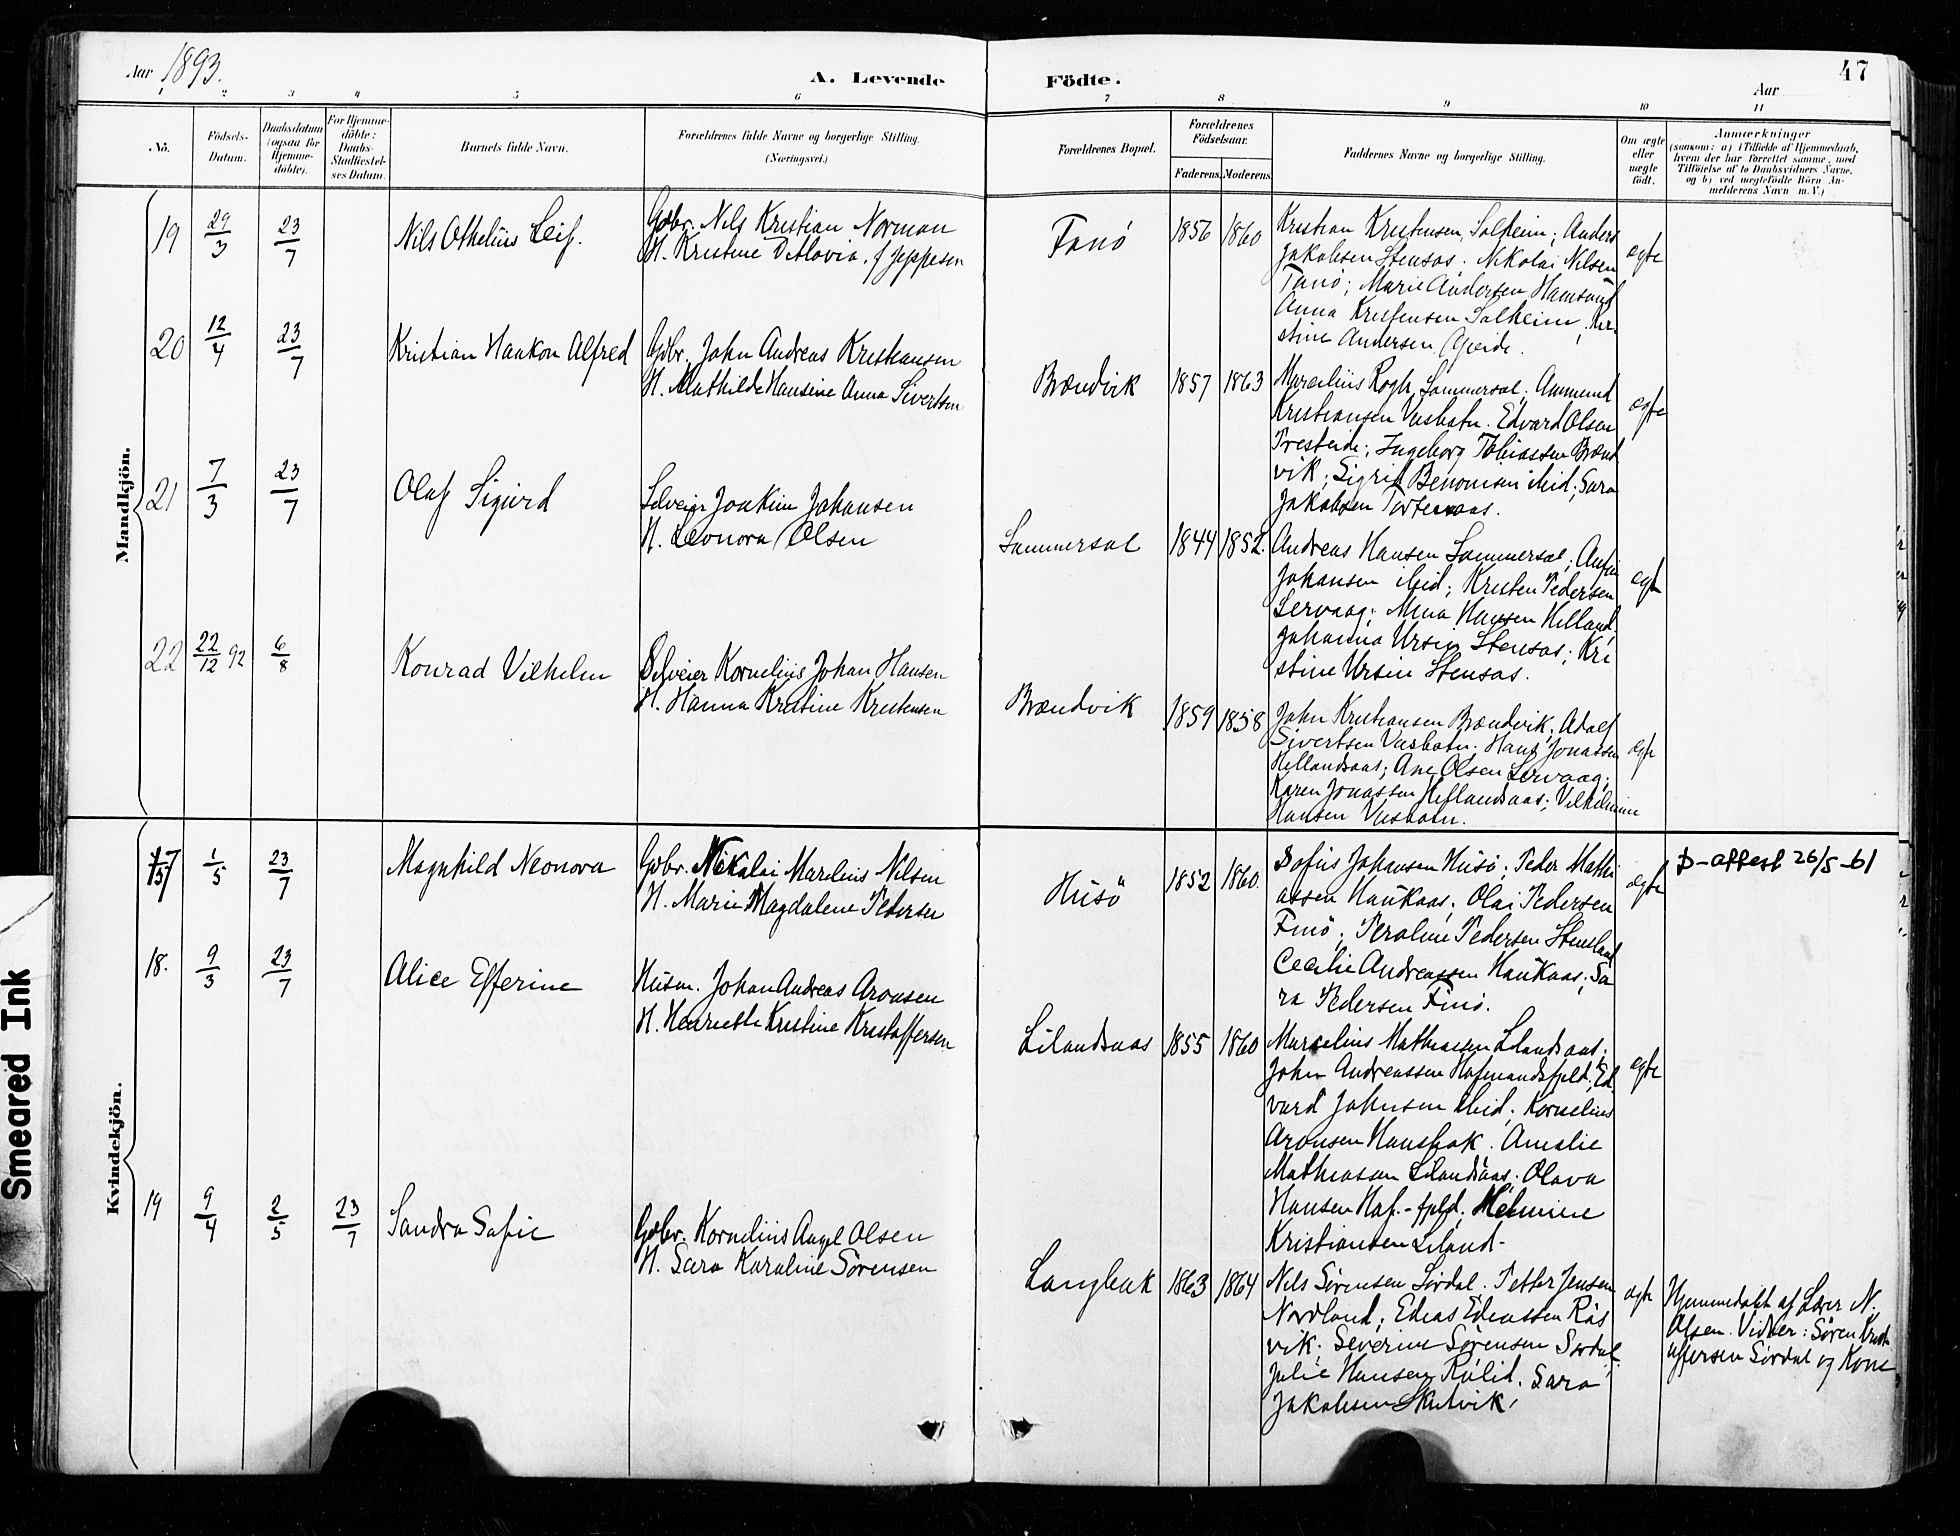 Aar 1893.
A. Levende
Födte.
47
Aar
1 2 3 4 5 6 7 8 9 10 11
No.
Födsels-
Datum.
Daabsdatum
(ogsaa for
Hjemme-
döbte).
For Hjemme-
döbte:
Daabs-
Stadfæstel-
ses Datum.
Barnets fulde Navn.
Forældrenes fulde Navne og borgerlige Stilling.
(Næringsvei.)
Forældrenes Bopæl.
Forældrenes
Födselsaar.
Faderens. Moderens.
Faddernes Navne og borgerlige Stilling.
Om ægte
eller
uægte
født.
Anmærkninger
(saasom: a) i Tilfælde af Hjemmedaab,
hvem der har forrettet samme, med
Tilföielse af to Daabsvidners Navne,
og b) ved uægtefödte Börn An-
melderens Navn m. V.)
Mandkjön.
19 29/3 23/7 Nils Othelius Leif.
Gdbr. Nils Kristian Norman
H. Kristine Ditlovia f. Jeppesen
Tanö 1856 1860
Kristian Kristensen, Salheim; Anders
Jakobsen Stensos; Nikolai Nilsen
Tanö; Marie Andersen Hamsund
Anna Kristensen Salheim, Kir-
stine Andersen
ægte
20 12/4 23/7 Kristian Haakon Alfred
Gdbr. John Andreas Kristiansen
H. Mathilde Hansine Anna Sivertsen
Brændvik 1857 1863
Marcelius Rogh, Sommersæl; Ammund
Kristiansen Vasbotn. Edvard Olsen
Presteide; Ingeborg Tobiassen Brænd
vik; Sigrid Benonisen ibid; Sara
Jakobsen
ægte
21 7/3 23/7 Olaf Sigurd
Selveier Joakim Johansen
H. Leonora Olsen
Sommersæl 1844 1852.
Andreas Hansen Sommersæl; Anfin
Johansen ibid; Kristen Pedersen
Lervaag; Mina Hansen Helland,
Johanna Ursin Stensos; Kri
stine Ursin Stensos.
ægte
22 22/12 92 6/8 Konrad Vilhelm
Selveier Kornelius Johan Hansen
H. Hanna Kristine Kristensen
Brændvik 1859 1858
John Kristiansen Brændvik, Adolf
Sivertsen Vasbotn. Hans Jonassen
Hellandsaas; Ane Olsen Lervaag;
Karen Jonassen Hellandsaas; Vilhelmine
Hansen Vasbotn.
ægte
Kvindekjön.
17 1/5 23/7 Magnhild Neonora
Gdbr. Nikolai Marelius Nilsen
H. Marie Magdalene Pedersen
Husö 1852 1860.
Sofus Johansen Husö; Peder Mathi
assen Haukaas; Olai Pedersen
Finö; Peroline Pedersen Stensland
Cecilie Andreassen Haukaas; Sa
ra Pedersen Finö.
ægte
D-attest 26/5-61
18. 9/3 23/7 Alice Efferine
Husm. Johan Andreas Aronsen
H. Henriette Kristine Kristoffersen
Lilandsaas 1855 1860
Marselius Mathiassen Lilandsaas.
John Andreassen Hafmandsfjeld; Ed
vard Johnsen ibid. Kornelius
Aronsen Hausbak. Amalie
Mathiassen Lilandsaas; Olava
Hansen Haf.-fjeld; Helmine
Kristiansen Liland-
ægte
19 9/4 2/5 23/7 Sandra Sofie
Gdbr. Kornelius Angel Olsen
H. Sara Karoline Sörensen
Langbak 1863 1864
Nils Sörensen Sördal. Petter Jensen
Nordland; Edias Ediassen Rös
vik; Severine Sörensen Sördal;
Julie Hansen Rölid. Sara
Jakobsen Skutvik.
ægte
Hjemmedöbt af Lærer N.
Olsen. Vidner: Sören Krist
offersen Sördal og Kone
Smeared Ink